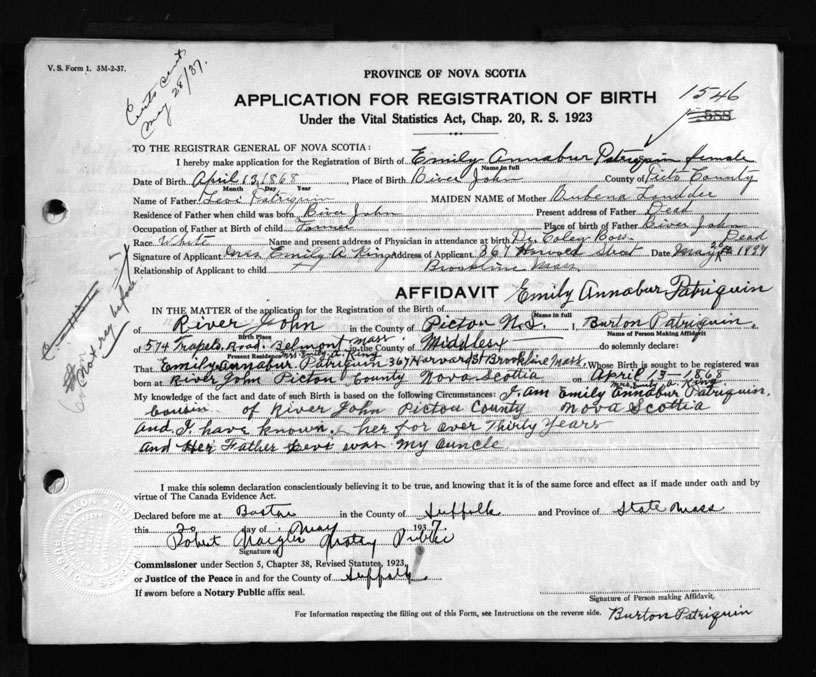 V. S. Form 1. 3M-2-37.
May 28/37.
PROVINCE OF NOVA SCOTIA
APPLICATION FOR REGISTRATION OF BIRTH
1546
588
Under the Vital Statistics Act, Chap. 20, R. S. 1923
TO THE REGISTRAR GENERAL OF NOVA SCOTIA:
I hereby make application for the Registration of Birth of Emily Annabur Patriquin female
Name in full
Date of Birth April 13, 1868, Place of Birth River John County of Picto County
Month Day Year
Name of Father Levi Patriquin MAIDEN NAME of Mother
Residence of Father when child was born River John Present address of Father Dead
Occupation of Father at Birth of child Farmer Place of birth of Father River John
Race White Name and present address of Physician in attendance at birth Dr. Dead
Signature of Applicant Mrs Emily A King Address of Applicant 367 Harvard Street Date May 1937
Relationship of Applicant to child Brookline Mass
AFFIDAVIT Emily Annabur Patriquin
IN THE MATTER of the application for the Registration of the Birth of
Name in full
of River John in the County of Picton N.S. I, Burton Patriquin,
Birth Place Name of Person Making Affidavit
of 574 Trapelo Road, Belmont Mass in the County of Middlesex do solemnly declare:
Present Residence Mrs Emily A. King
That Emily Annabur Patriquin 367 Harvard St Brookline Mass, Whose Birth is sought to be registered was
born at River John Picton County Nova Scottia on April 13-1868
Mrs Emily A King
My knowledge of the fact and date of such Birth is based on the following Circumstances: I am Emily Annabur Patriquin,
Cousin of River John Pictou County Nova Scottia
and I have known her for over Thirty Years
and Her Father Levi was My auncle
I make this solemn declaration conscientiously believing it to be true, and knowing that it is of the same force and effect as if made under oath and by
virtue of The Canada Evidence Act.
Declared before me at Boston in the County of Suffolk and Province of State Mass
this 20 day of May 1937
Robert Notary Public
Signature of
Commissioner under Section 5, Chapter 38, Revised Statutes, 1923,
or Justice of the Peace in and for the County of Suffolk
If sworn before a Notary Public affix seal.
Signature of Person making Affidavit,
For Information respecting the filling out of this Form, see Instructions on the reverse side. Burton Patriquin
Not reg before